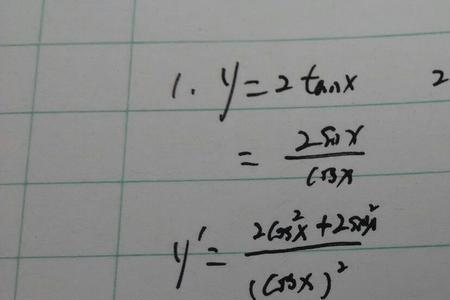 1. y = 2 tanx 2
= 2 sin x / cos x
y' = 2cos²x + 2sin²x / (cos x)²